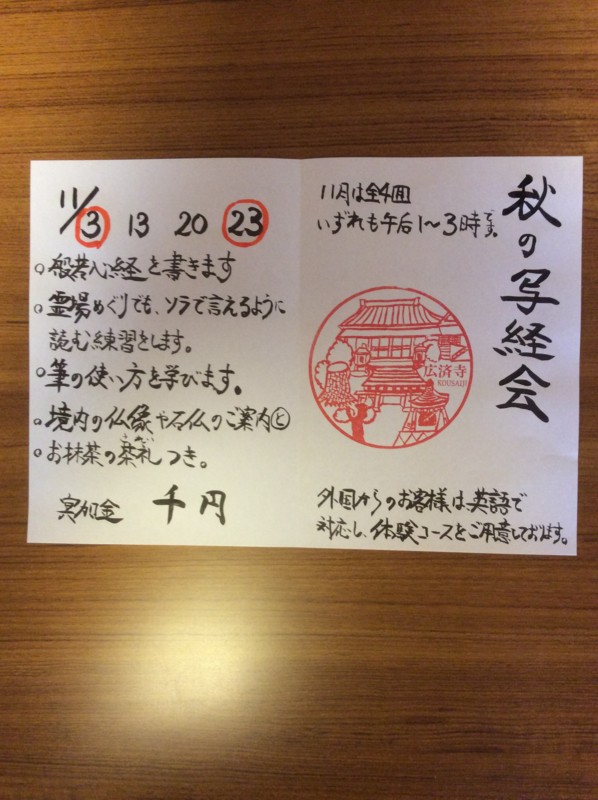 秋の写経会
11月は全4回
いずれも午后1〜3時です。
広済寺
KOUSAIJI
外国からのお客様は英語で
対応し、体験コースをご用意しております。
11/3 13 20 23
。般若心経を書きます
。霊場めぐりでも、ソラで言えるように
読む練習をします。
。筆の使い方を学びます。
。境内の仏像や石仏のご案内と
。お抹茶の茶礼つき。
冥加金 千円